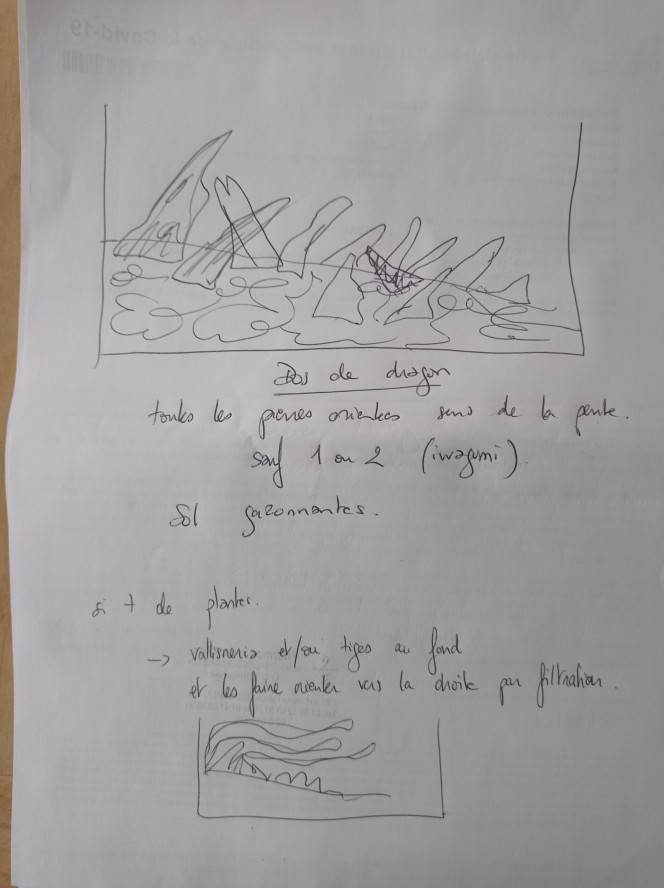 Dos de dragon
toutes les pierres orientées sens de la pente.
sauf 1 ou 2 (iwagumi).
Sol gazonnantes.
si + de plantes.
→ vallisneria et/ou tiges au fond
et les faire orienter vers la droite par filtration.